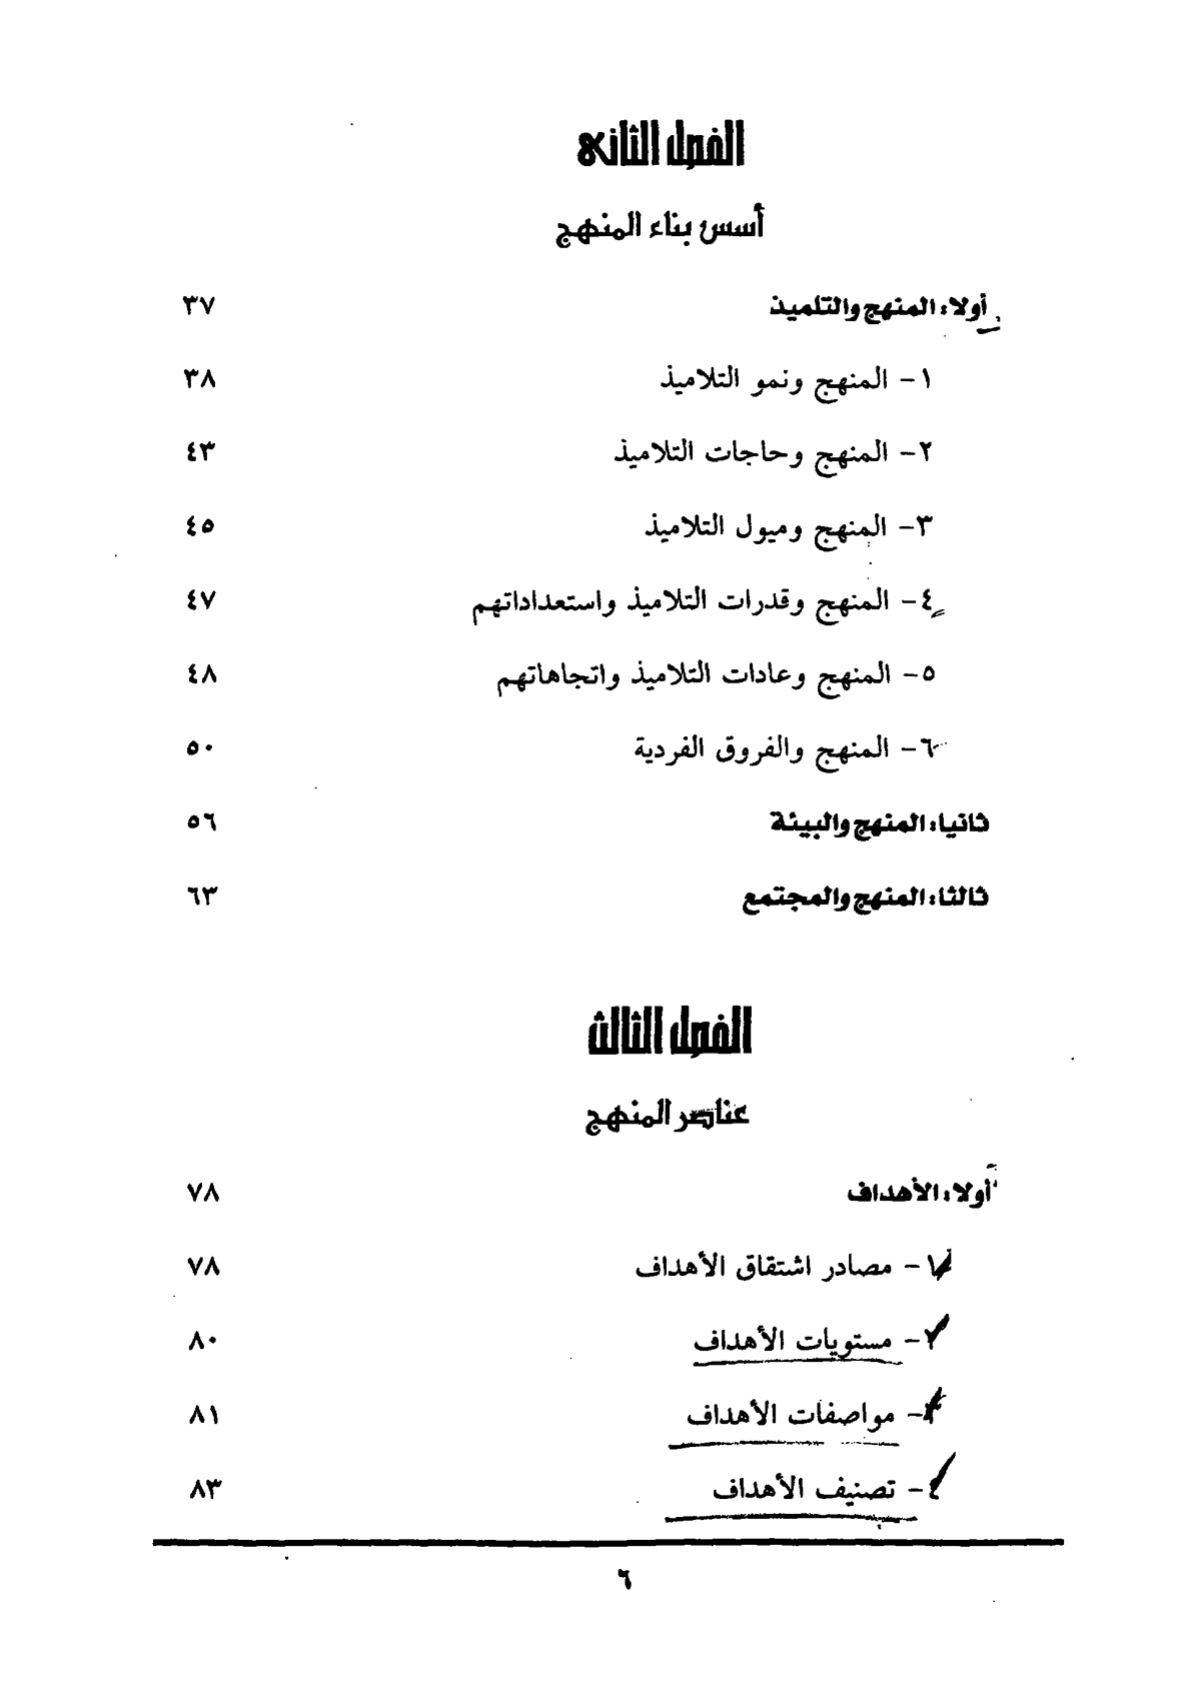 الفصل الثانى
أسس بناء المنهج
أولا: المنهج والتلميذ ٣٧
١- المنهج ونمو التلاميذ ٣٨
٢- المنهج وحاجات التلاميذ ٤٣
٣- المنهج وميول التلاميذ ٤٥
٤- المنهج وقدرات التلاميذ واستعداداتهم ٤٧
٥- المنهج وعادات التلاميذ واتجاهاتهم ٤٨
٦- المنهج والفروق الفردية ٥٠
ثانيا: المنهج والبيئة ٥٦
ثالثا: المنهج والمجتمع ٦٣
الفصل الثالث
عناصر المنهج
أولا: الأهداف ٧٨
١- مصادر اشتقاق الأهداف ٧٨
٢- مستويات الأهداف ٨٠
٣- مواصفات الأهداف ٨١
٤- تصنيف الأهداف ٨٣
٦